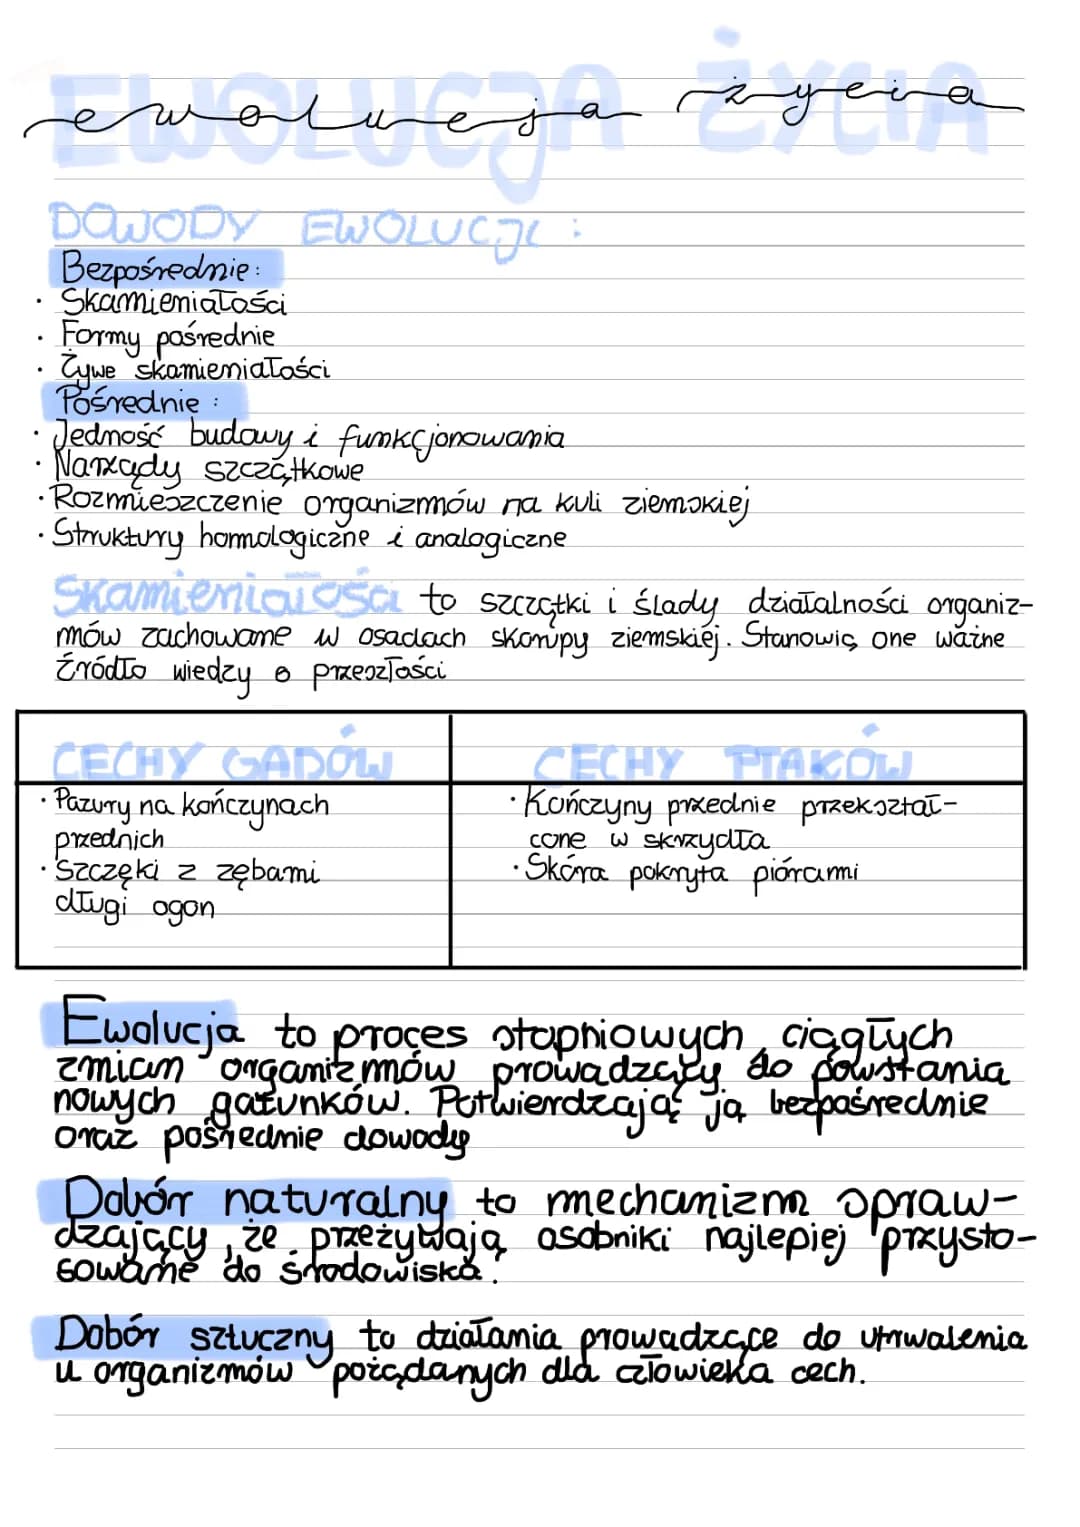 EWOLUCJA ŻYCIA
ewolucja życia
DOWODY EWOLUCJI:
Bezpośrednie:
· Skamieniałości
· Formy pośrednie
· Żywe skamieniałości
Pośrednie:
· Jedność budowy i funkcjonowania
· Narządy szczątkowe
· Rozmieszczenie organizmów na kuli ziemskiej
· Struktury homologiczne i analogiczne
Skamieniałości to szczątki i ślady działalności organiz-
mów zachowane w osadach skorupy ziemskiej. Stanowią one ważne
źródło wiedzy o przeszłości
CECHY GADÓW
· Pazury na kończynach
przednich
· Szczęki z zębami
długi ogon
CECHY PTAKÓW
· Kończyny przednie przekształ-
cone w skrzydła
· Skóra pokryta piórami
Ewolucja to proces stopniowych, ciągłych
zmian organizmów prowadzący do powstania
nowych gatunków. Potwierdzają ją bezpośrednie
oraz pośrednie dowody
Dobór naturalny to mechanizm spraw-
dzający, że przeżywają osobniki najlepiej przysto-
sowane do środowiska.
Dobór sztuczny to działania prowadzące do utrwalenia
u organizmów pożądanych dla człowieka cech.